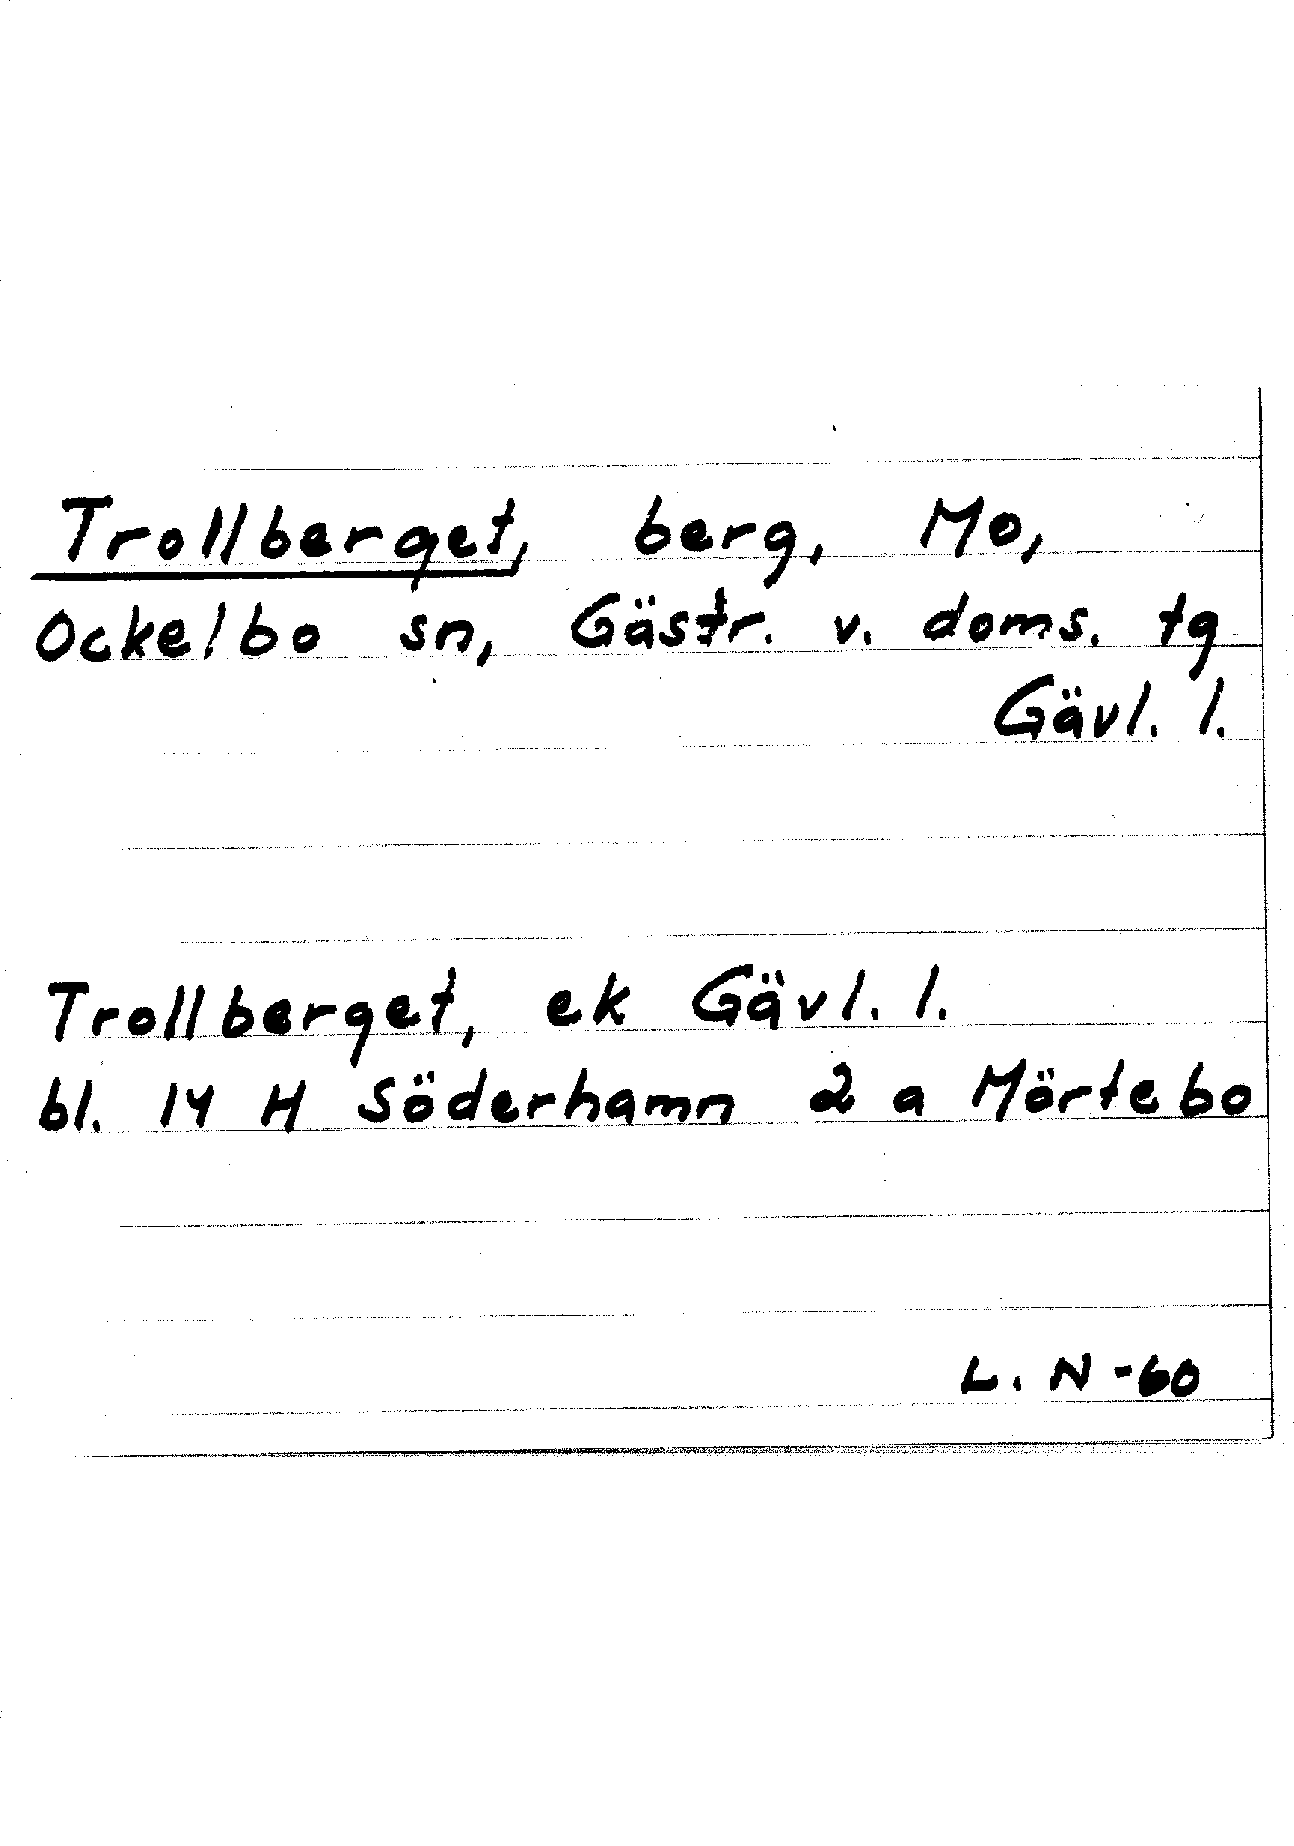 Trollberget, berg, Mo,
Ockelbo sn, Gästr. v. doms. tg
Gävl. l.
Trollberget, ek Gävl. l.
bl. 14 H Söderhamn 2 a Mörtebo
L. N -60